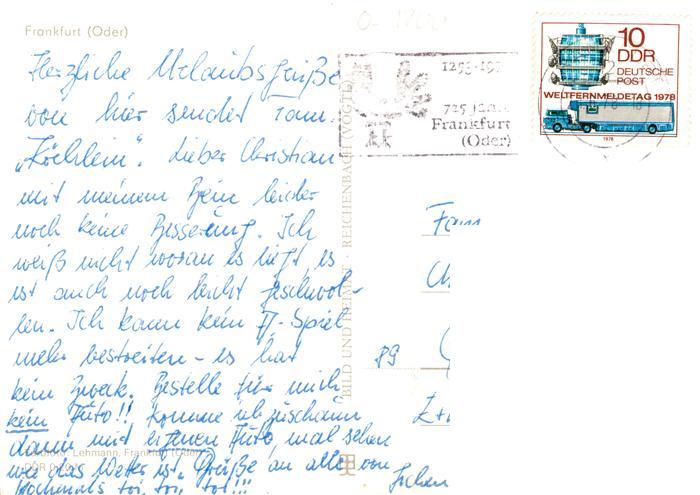 Frankfurt (Oder)
Herzliche Urlaubsgrüße
von hier sendet Fam.
„Köchlein". Lieber Christian
mit meinem Bein leider
noch keine Besserung. Ich
weiß nicht woran es liegt es
ist auch noch leicht geschwol-
len. Ich kann kein TT-Spiel
mehr bestreiten - es hat
kein Zweck. Bestelle für mich
kein Auto!! Komme ich zuschaun
dann mit eigenen Auto, mal sehen
wie das Wetter ist. Grüße an alle von
Nochmals toi, toi, toi!!!
Jochen
Lehmann, Frankfurt (Oder)
BILD UND HEIMAT REICHENBACH
Fam
Ch
89
1253-19
725 Jahre
Frankfurt
(Oder)
10
DDR
DEUTSCHE
POST
WELTFERNMELDETAG 1978
1978